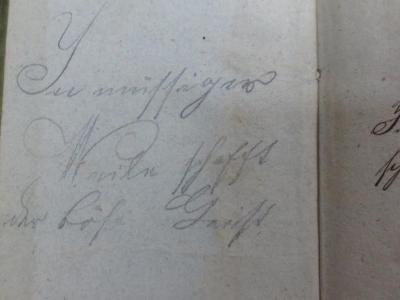 In müssiger
Weile schafft
der böse Geist